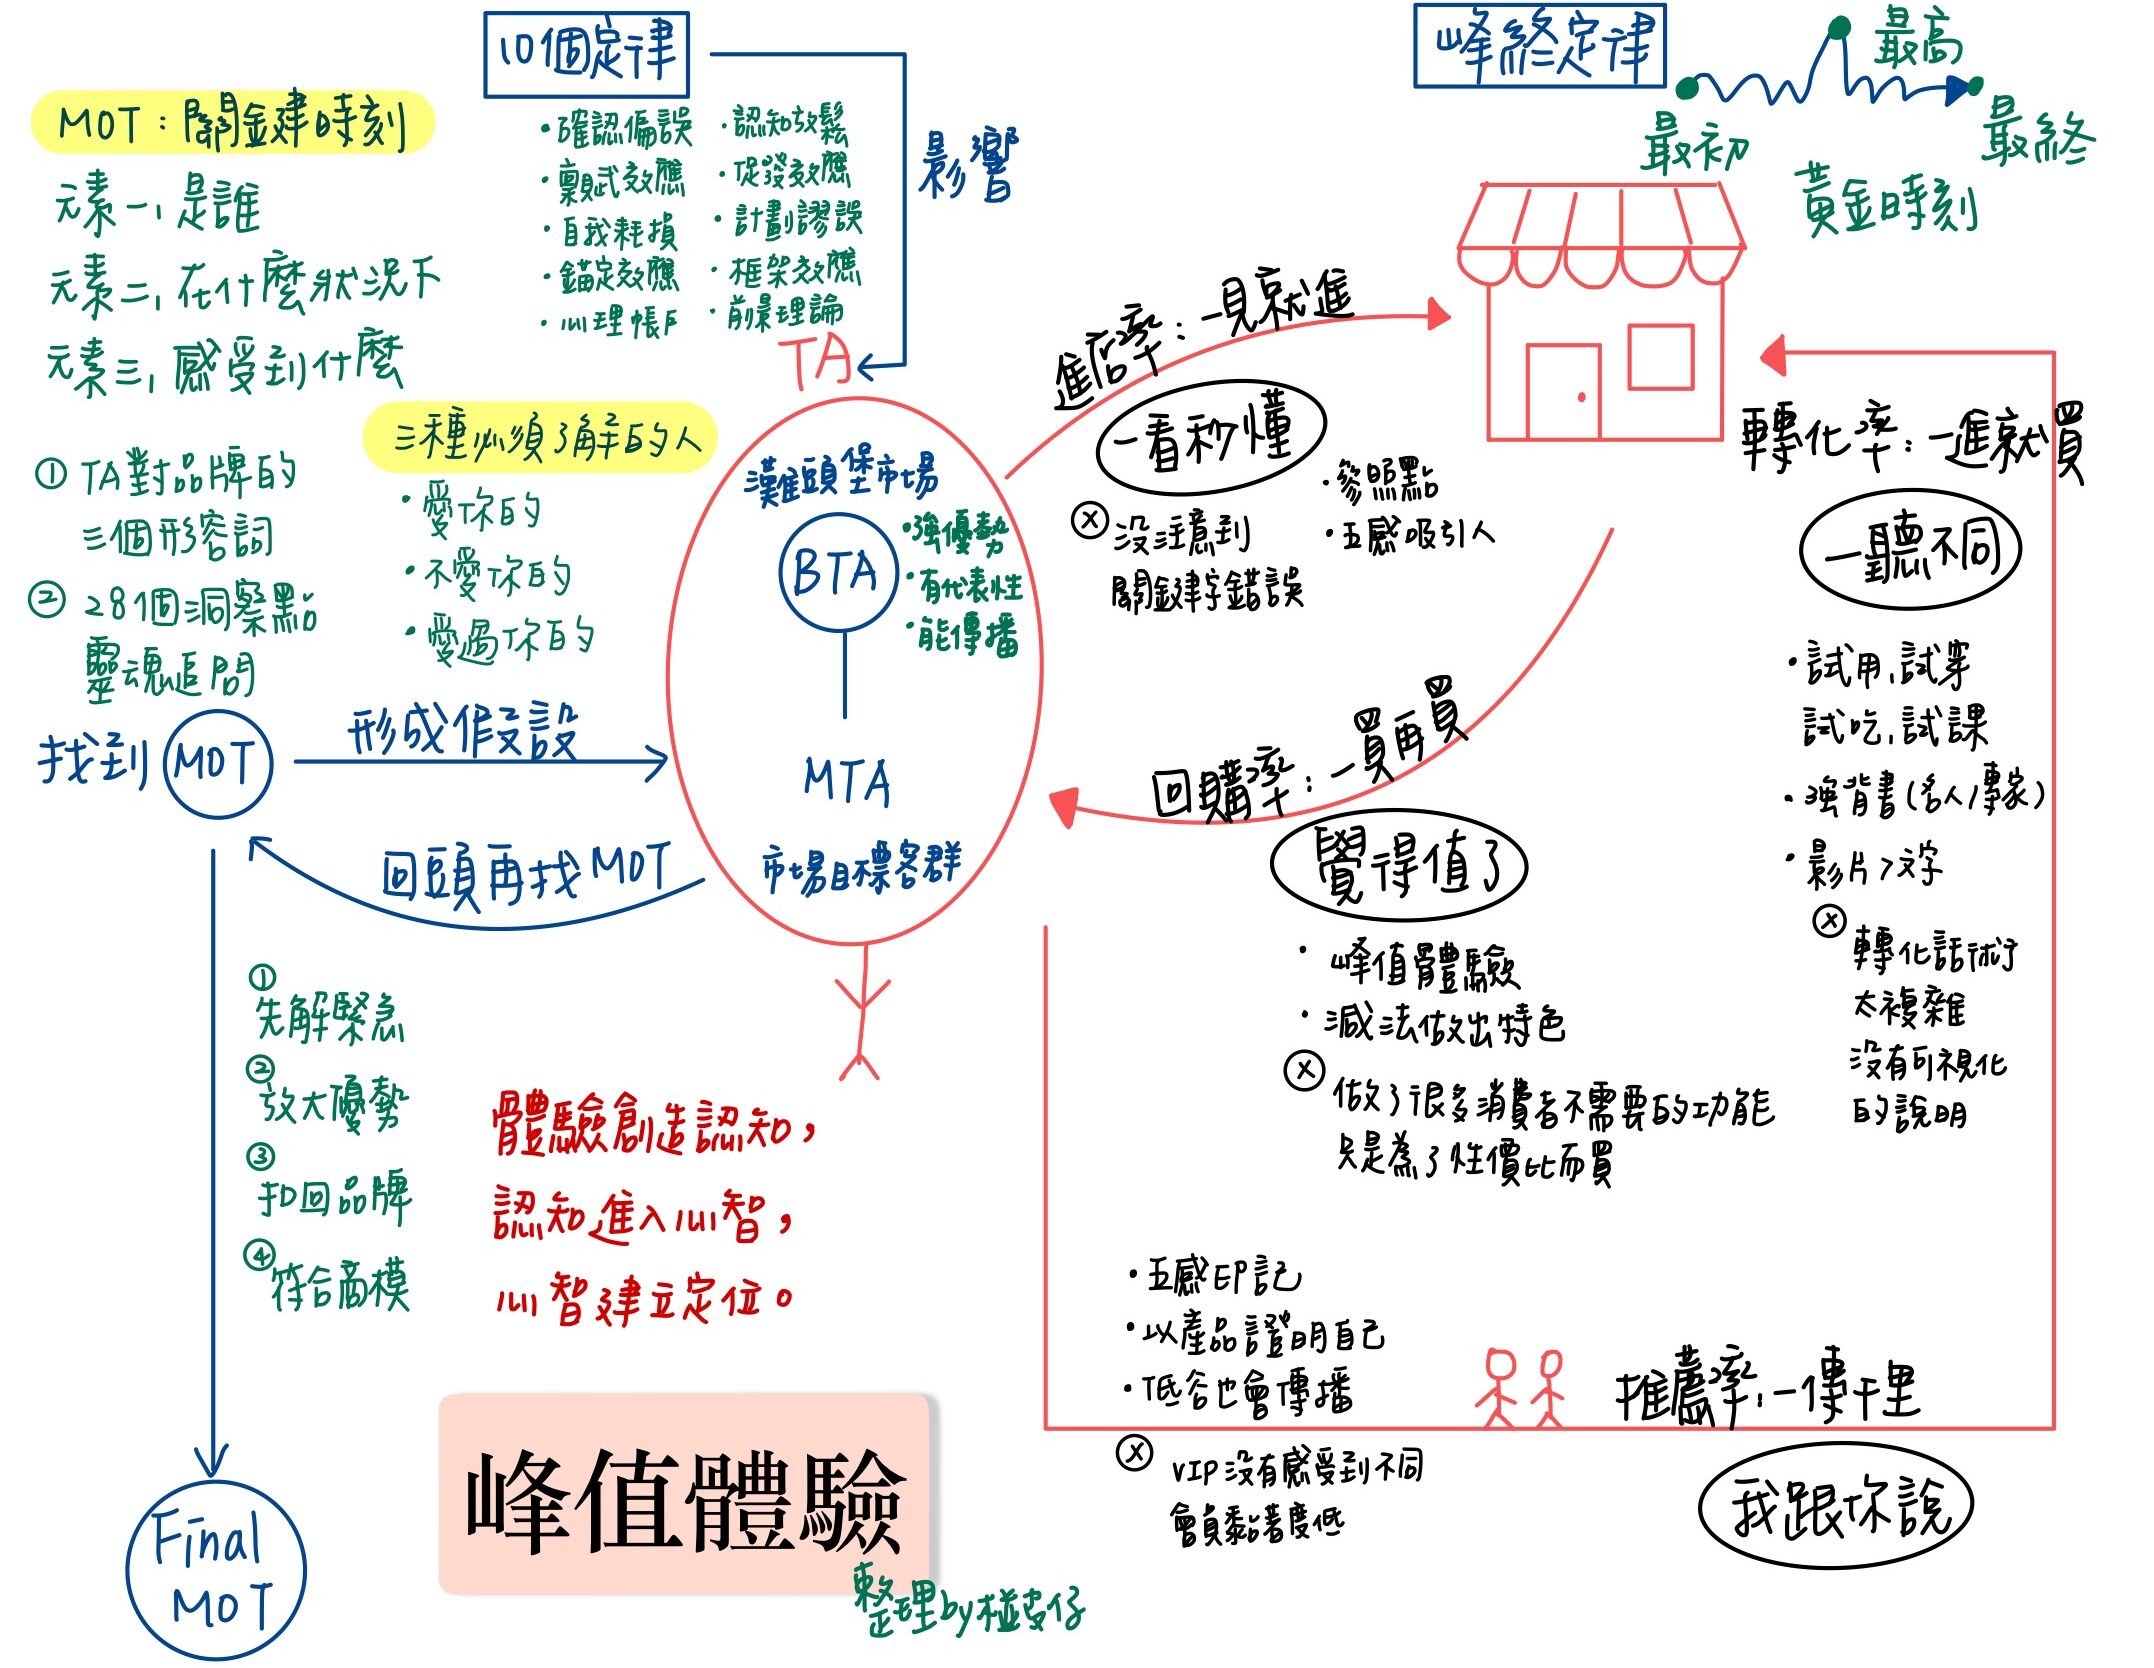 10個定律
峰終定律
最高
最初
最終
黃金時刻
MOT：關鍵時刻
元素一, 是誰
元素二, 在什麼狀況下
元素三, 感受到什麼
・確認偏誤
・認知放鬆
・月暈效應
・促發效應
・自我耗損
・計劃謬誤
・錨定效應
・框架效應
・心理帳戶
・前景理論
影響
TA
① TA對品牌的
三個形容詞
② 28個洞察點
靈魂追問
三種必須了解的人
・愛你的
・不愛你的
・愛過你的
找到 MOT
形成假設
回頭再找MOT
灘頭堡市場
BTA
・強優勢
・有代表性
・能傳播
MTA
市場目標客群
進店率：一見就進
一看秒懂
・參照點
・五感吸引人
ⓧ 沒注意到
關鍵字錯誤
轉化率：一進就買
一聽不同
・試用, 試穿
試吃, 試課
・強背書(名人/專家)
・影片>文字
ⓧ 轉化話術
太複雜
沒有可視化
的說明
回購率：一買再買
覺得值了
・峰值體驗
・減法做出特色
ⓧ 做了很多消費者不需要的功能
只是為了性價比而買
①
先解緊急
②
放大優勢
③
扣回品牌
④
符合商模
Final
MOT
體驗創造認知，
認知進入心智，
心智建立定位。
・五感印記
・以產品證明自己
・低谷也會傳播
ⓧ VIP沒有感受到不同
會員黏著度低
推薦率, 一傳千里
我跟你說
峰值體驗
整理by椪皮仔